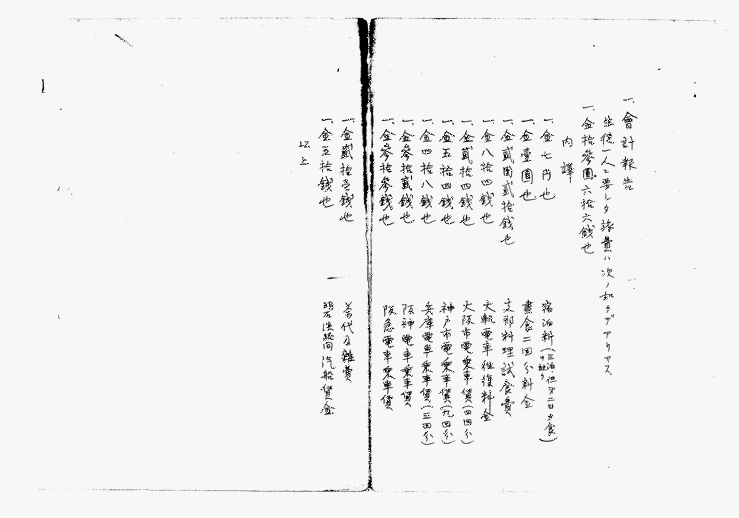 一、會計報告
生徒一人ニ要シタ旅費ハ次ノ如クデアリマス
一、金拾參圓六拾六錢也
内譯
一、金七円也 宿泊料(三泊、但第二日夕食
一、金壹圓也 晝食二回分料金
一、金貳圓貳拾錢也 支那料理試食費
一、金八拾四錢也 大軌電車往復料金
一、金貳拾四錢也 大阪市電乘車賃(四回分)
一、金五拾四錢也 神戸市電乘車賃(九回分)
一、金四拾八錢也 兵庫電車乘車賃(三回分)
一、金參拾貳錢也 阪神電車乘車賃
一、金參拾參錢也 阪急電車乘車賃
一、金貳拾壱錢也 茶代及雜費
一、金五拾錢也 明石淡路間汽船賃金
以上